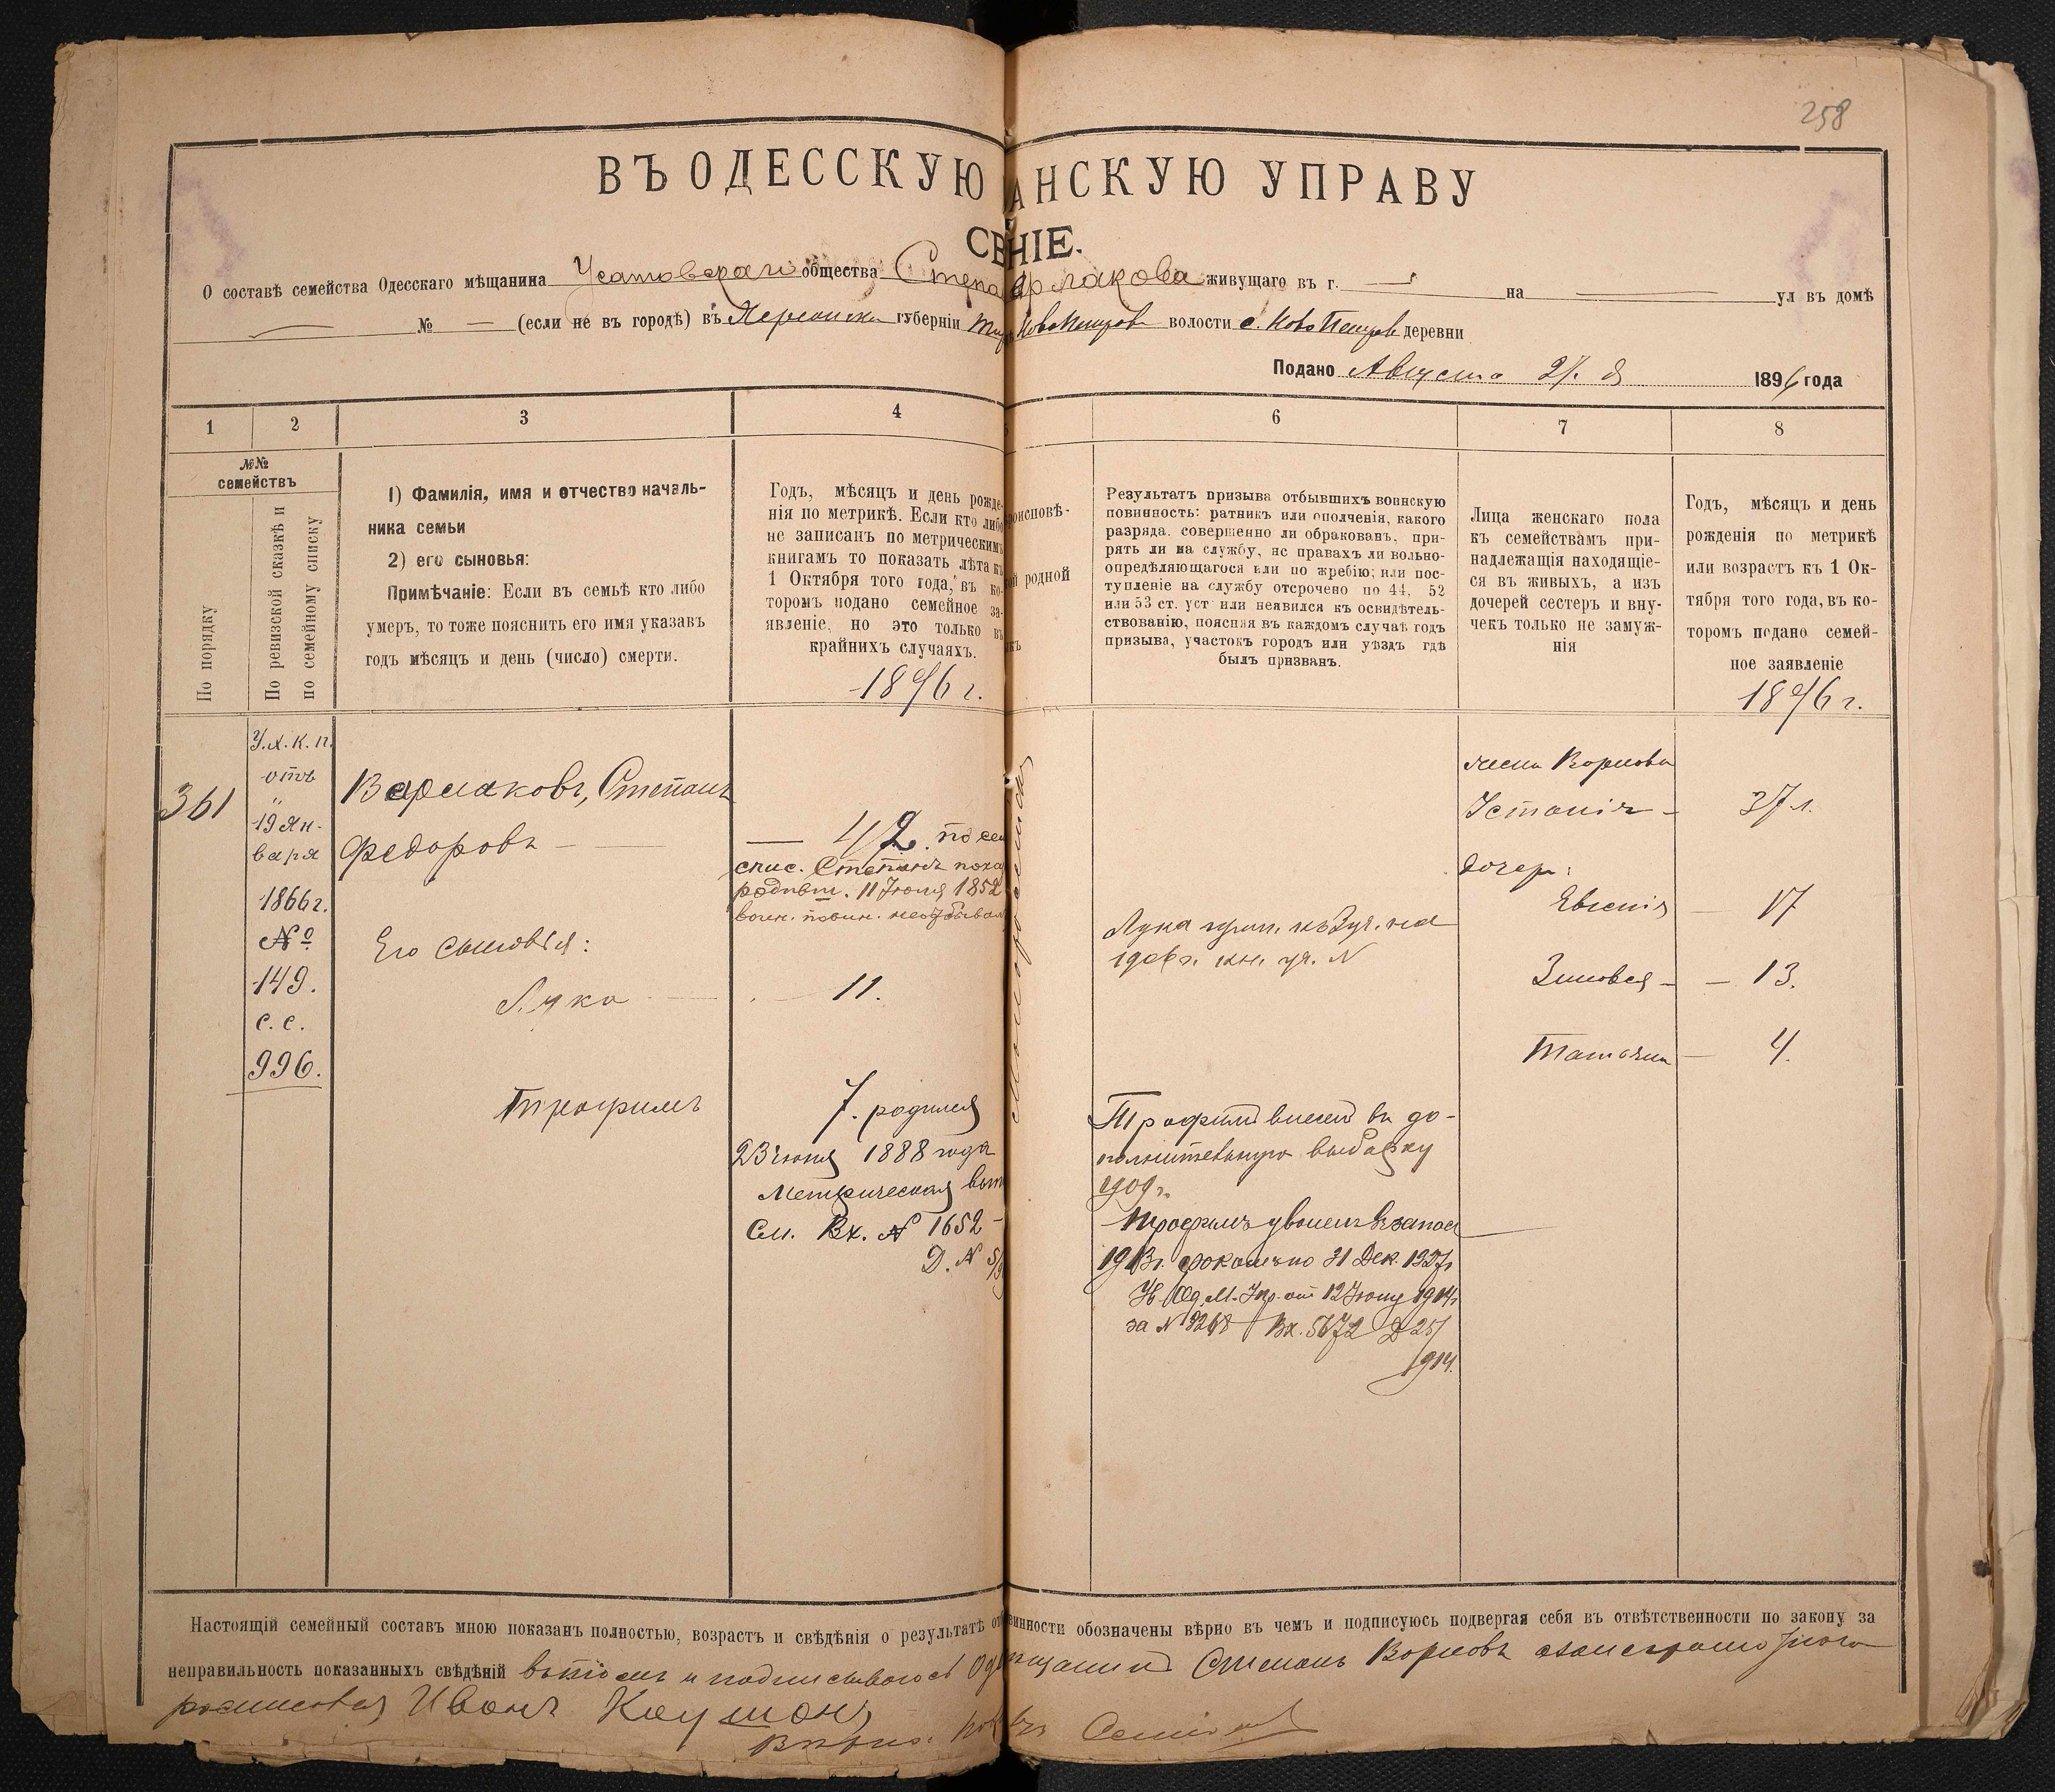 258
ВЪ ОДЕССКУЮ АНСКУЮ УПРАВУ
СЕНІЕ.
О составѣ семейства Одесскаго мѣщанина Усатовскаго общества Степа живущаго въ г. — на — ул въ домѣ
— № — (если не въ городѣ) въ Херсонск губерніи волости с. деревни
Подано Августа 27 д 1896 года
1 2 3 4 6 7 8
№№ семействъ
По порядку
По ревизской сказкѣ и по семейному списку
1) Фамилія, имя и отчество началь-
ника семьи
2) его сыновья:
Примѣчаніе: Если въ семьѣ кто либо
умеръ, то тоже пояснить его имя указавъ
годъ мѣсяцъ и день (число) смерти.
Годъ, мѣсяцъ и день рожде-
нія по метрикѣ. Если кто либо
не записанъ по метрическимъ
книгамъ то показать лѣта къ
1 Октября того года, въ ко-
торомъ подано семейное за-
явленіе, но это только въ
крайнихъ случаяхъ.
1896 г.
роисповѣ-
ой родной
къ
Результатъ призыва отбывшихъ воинскую
повинность: ратникъ или ополченія, какого
разряда. совершенно ли обракованъ, при-
рять ли на службу, нс правахъ ли вольно-
опредѣляющагося или по жребію; или пос-
тупленіе на службу отсрочено по 44, 52
или 53 ст. уст или неявился къ освидѣтель-
ствованію, поясняя въ каждомъ случаѣ годъ
призыва, участокъ городъ или уѣздъ гдѣ
былъ призванъ.
Лица женскаго пола
къ семействамъ при-
надлежащія находящіе-
ся въ живыхъ, а изъ
дочерей сестеръ и вну-
чекъ только не замуж-
нія
Годъ, мѣсяцъ и день
рожденія по метрикѣ
или возрастъ къ 1 Ок-
тября того года, въ ко-
торомъ подано семей-
ное заявленіе
1896 г.
361
У.Х.К.П.
отъ
19 Ян-
варя
1866 г.
№
149.
с. с.
996.
Варлаковъ, Степанъ
Федоровъ —
Его сыновья:
Лука
Трофимъ
— 42. по сем
спис. Степанъ пока
родивш. 11 Іюля 1852
воен. повин. не отбывал
11.
7. родился
23 іюня 1888 года
Метрическая вып
См. Вх. № 1652 -
Д. №
Лука прип. къ на
1906 г. уч. №
Трофимъ внесен въ до-
полнительную выборку
1909 г.
Трофимъ уволенъ въ запас
1913 г. срокомъ по 31 Дек. 1927 г
Од. М. Упр. от 12 Іюня 1914 г
за № 8268 Вх. 5672 Д 25/
1914.
жена
Устинія —
37 л.
дочер:
Евгенія — 17
Зиновія — — 13.
Татіана — 4.
Настоящій семейный составъ мною показанъ полностью, возрастъ и свѣдѣнія о результатѣ от винности обозначены вѣрно въ чемъ и подписуюсь подвергая себя въ отвѣтственности по закону за
неправильность показанныхъ свѣдѣній въ томъ и подписываюсь Од Степанъ
росписался Иванъ